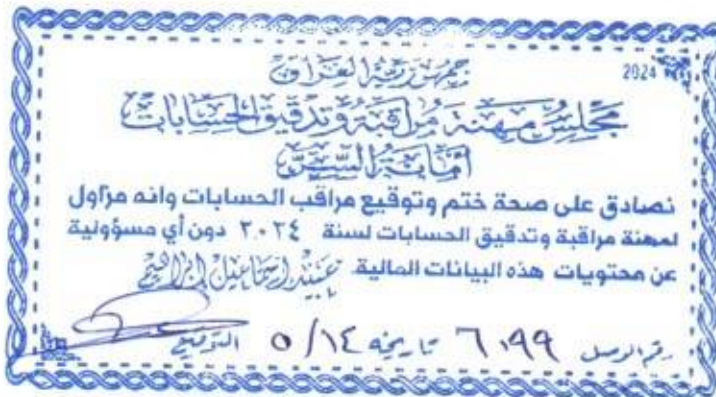 2024
جمهورية العراق
مجلس مهنة مراقبة وتدقيق الحسابات
أمانة السر
نصادق على صحة ختم وتوقيع مراقب الحسابات وانه مزاول
لمهنة مراقبة وتدقيق الحسابات لسنة ٢٠٢٤ دون أي مسؤولية
عن محتويات هذه البيانات المالية اسماعيل ابراهيم
رقم الوصل ٦٠٩٩ تاريخه ٥/١٤ التوقيع